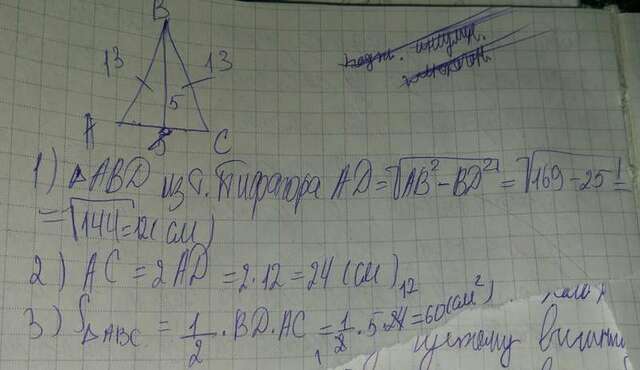 B
13 13
5
A D C
1) △ABD из т. Пифагора AD = √AB² - BD² = √169 - 25 =
= √144 = 12 (см)
2) AC = 2AD = 2·12 = 24 (см)
12
3) S△ABC = 1/2 · BD · AC = 1/2 · 5 · 24 = 60 (см²)